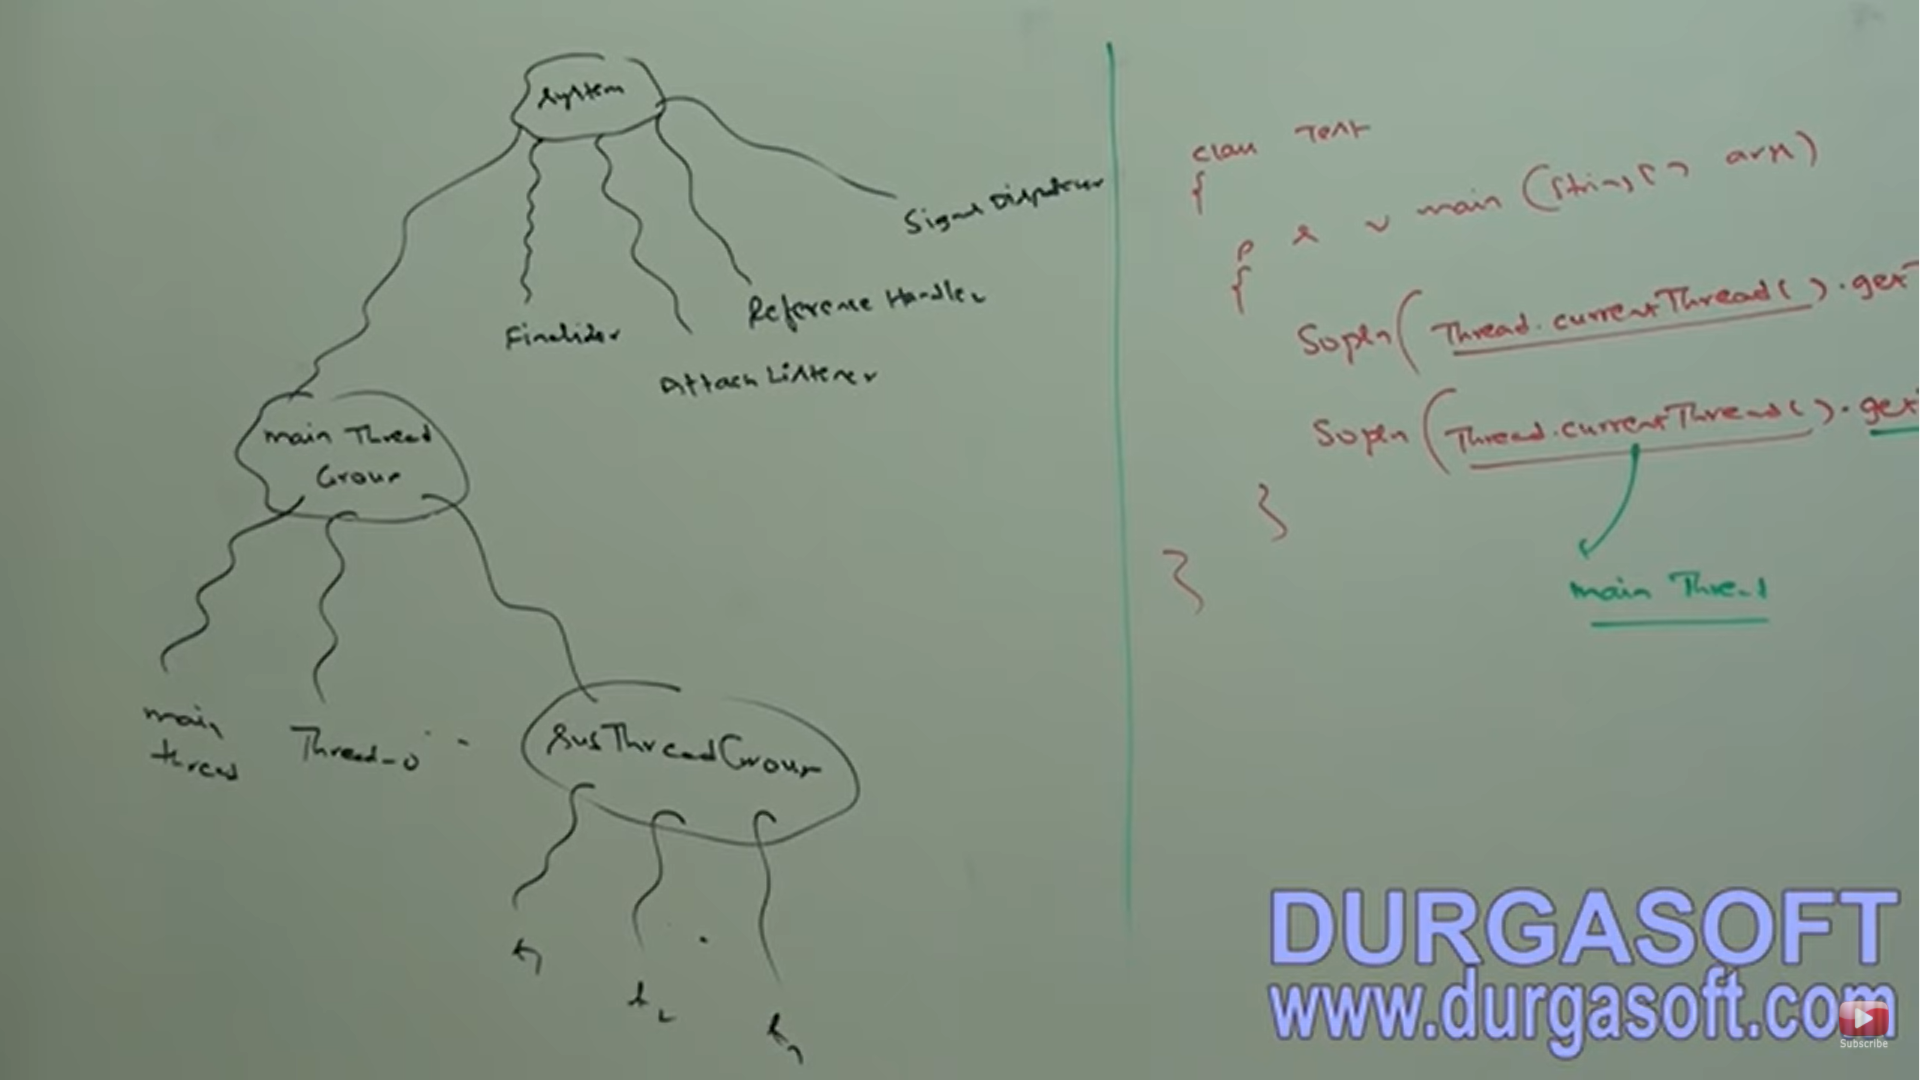 System
Signal Dispatcher
Reference Handler
Finalizer
Attach Listener
main Thread
Group
main
thread
Thread-0
SubThreadGroup
t1
t2
class Test
{
p s v main (String[] args)
{
Sopln(Thread.currentThread().getT
Sopln(Thread.currentThread().get
}
}
main Thread
DURGASOFT
www.durgasoft.com
Subscribe